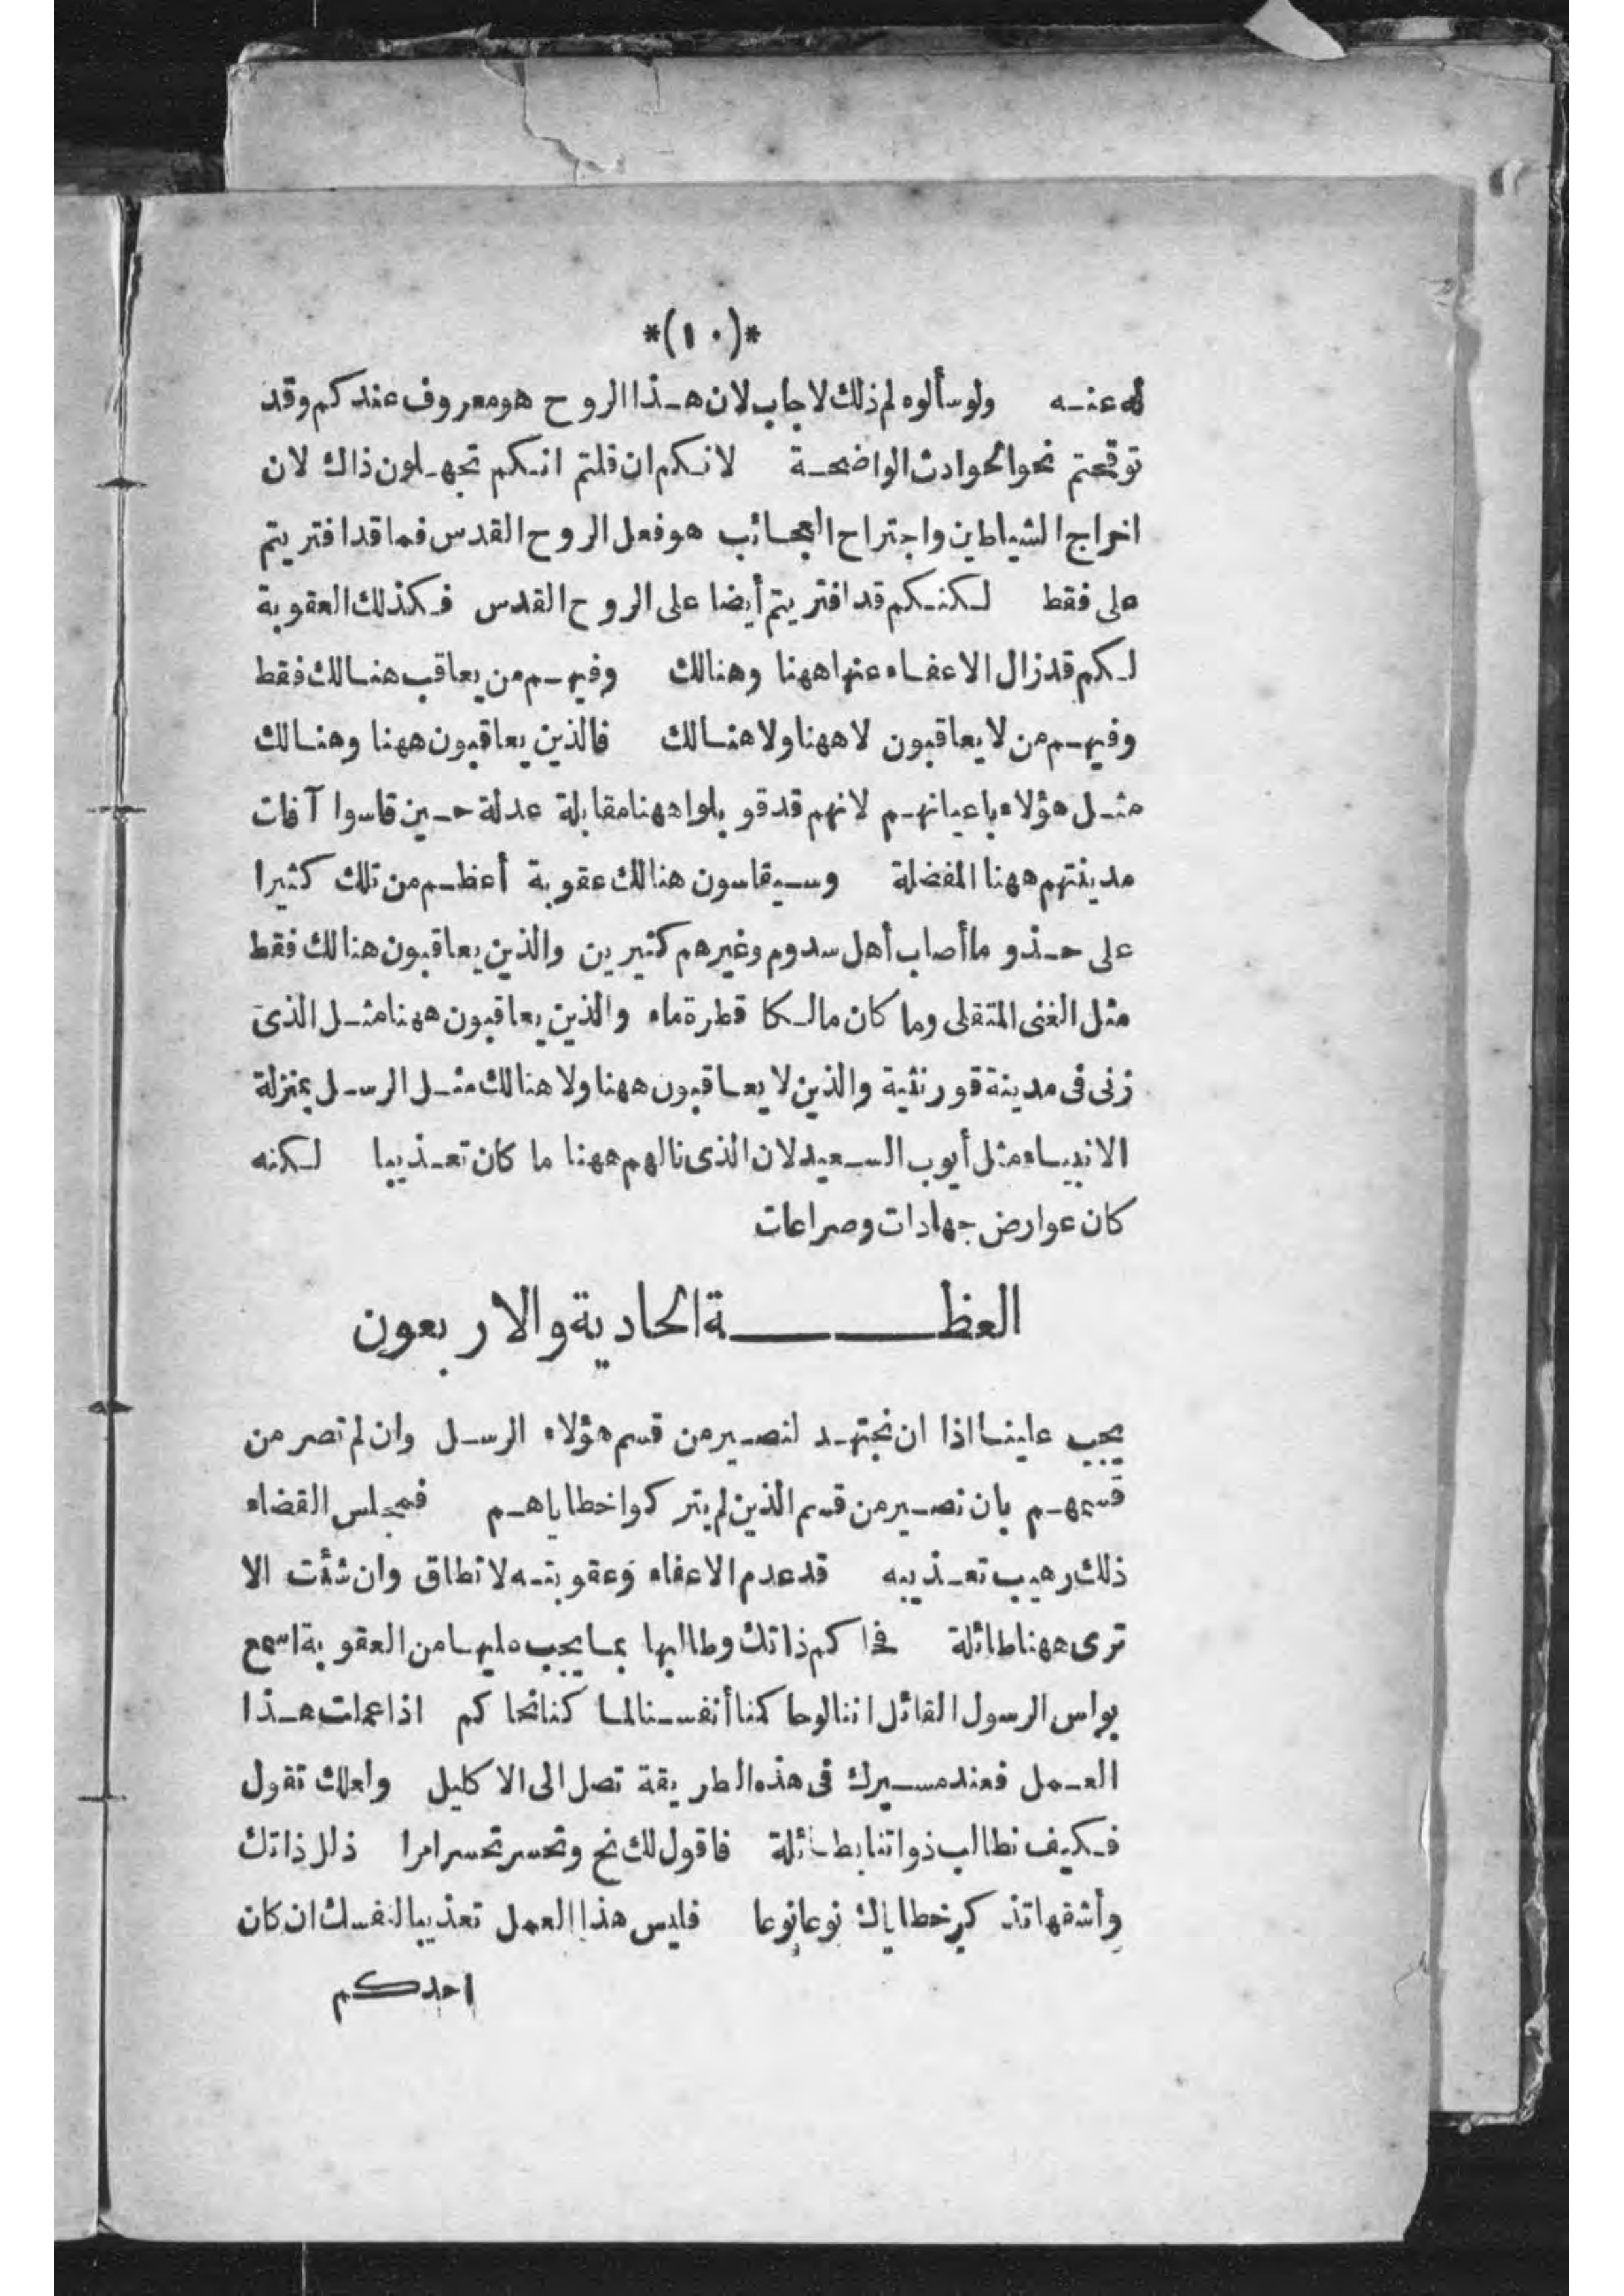 *(١٠)*
له عنه ولو سألوه لم ذلك لاجاب لان هذا الروح هو معروف عندكم وقد
توقحتم نحو الحوادث الواضحة لانكم ان قلتم انكم تجهلون ذاك لان
اخراج الشياطين واجتراح العجائب هو فعل الروح القدس فما قد افتريتم
على فقط لكنكم قد افتريتم أيضا على الروح القدس فكذلك العقوبة
لكم قد زال الاعفاء عنها ههنا وهنالك وفيهم من يعاقب هنالك فقط
وفيهم من لا يعاقبون لا ههنا ولا هنالك فالذين يعاقبون ههنا وهنالك
مثل هؤلاء باعيانهم لانهم قد قوبلوا ههنا مقابلة عدلة حين قاسوا آفات
مدينتهم ههنا المفضلة وسيقاسون هنالك عقوبة أعظم من تلك كثيرا
على حذو ما أصاب أهل سدوم وغيرهم كثيرين والذين يعاقبون هنالك فقط
مثل الغنى المتقلى وما كان مالكا قطرة ماء والذين يعاقبون ههنا مثل الذى
زنى فى مدينة قورنثية والذين لا يعاقبون ههنا ولا هنالك مثل الرسل بمنزلة
الانبياء مثل أيوب السعيد لان الذى نالهم ههنا ما كان تعذيبا لكنه
كان عوارض جهادات وصراعات
العظة الحادية والاربعون
يجب علينا اذا ان نجتهد لنصير من قسم هؤلاء الرسل وان لم تصر من
قسمهم بان نصير من قسم الذين لم يتركوا خطاياهم فمجلس القضاء
ذلك رهيب تعذيبه قد عدم الاعفاء وعقوبته لا تطاق وان شئت الا
ترى ههنا طائلة فحاكم ذاتك وطالبها بما يجب عليها من العقوبة اسمع
بولس الرسول القائل اننا لو حاكمنا أنفسنا لما كنا نحاكم اذا عملت هذا
العمل فعند مسيرك فى هذه الطريقة تصل الى الاكليل ولعلك تقول
فكيف نطالب ذواتنا بطائلة فاقول لك نح وتحسر تحسرا مرا ذلل ذاتك
وأشقها تذكر خطاياك نوعا نوعا فليس هذا العمل تعذيبا لنفسك ان كان
احدكم